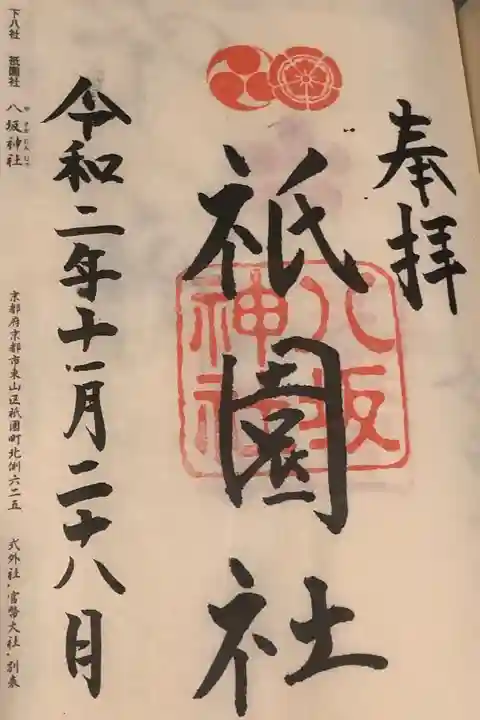 奉拝
祇園社
八坂
神社
令和二年十一月二十八日
下八社 祇園社 八坂神社 京都府京都市東山区祇園町北側六二五 式外社・官幣大社・別表
や さか じん じゃ